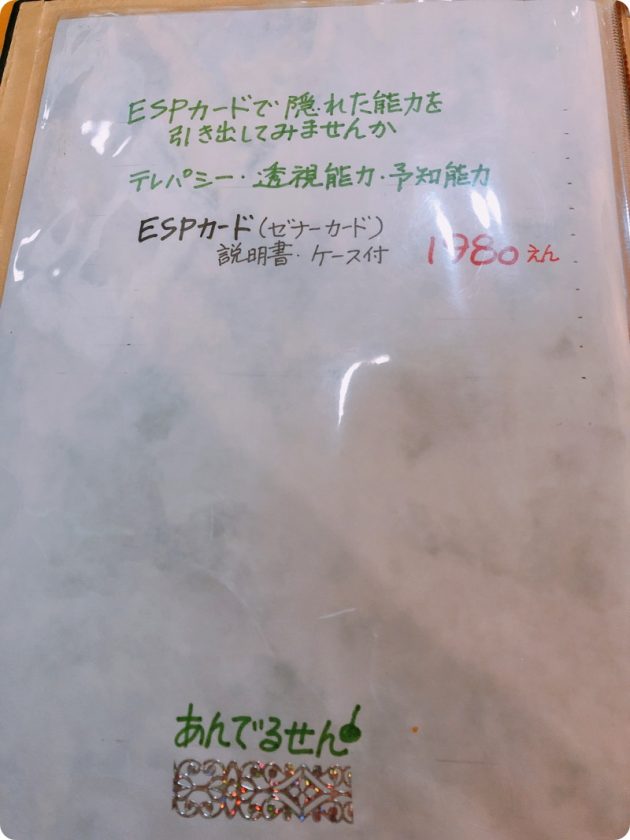 ESPカードで隠れた能力を
引き出してみませんか
テレパシー・透視能力・予知能力
ESPカード(ゼナーカード)
説明書・ケース付 1980えん
あんでるせん